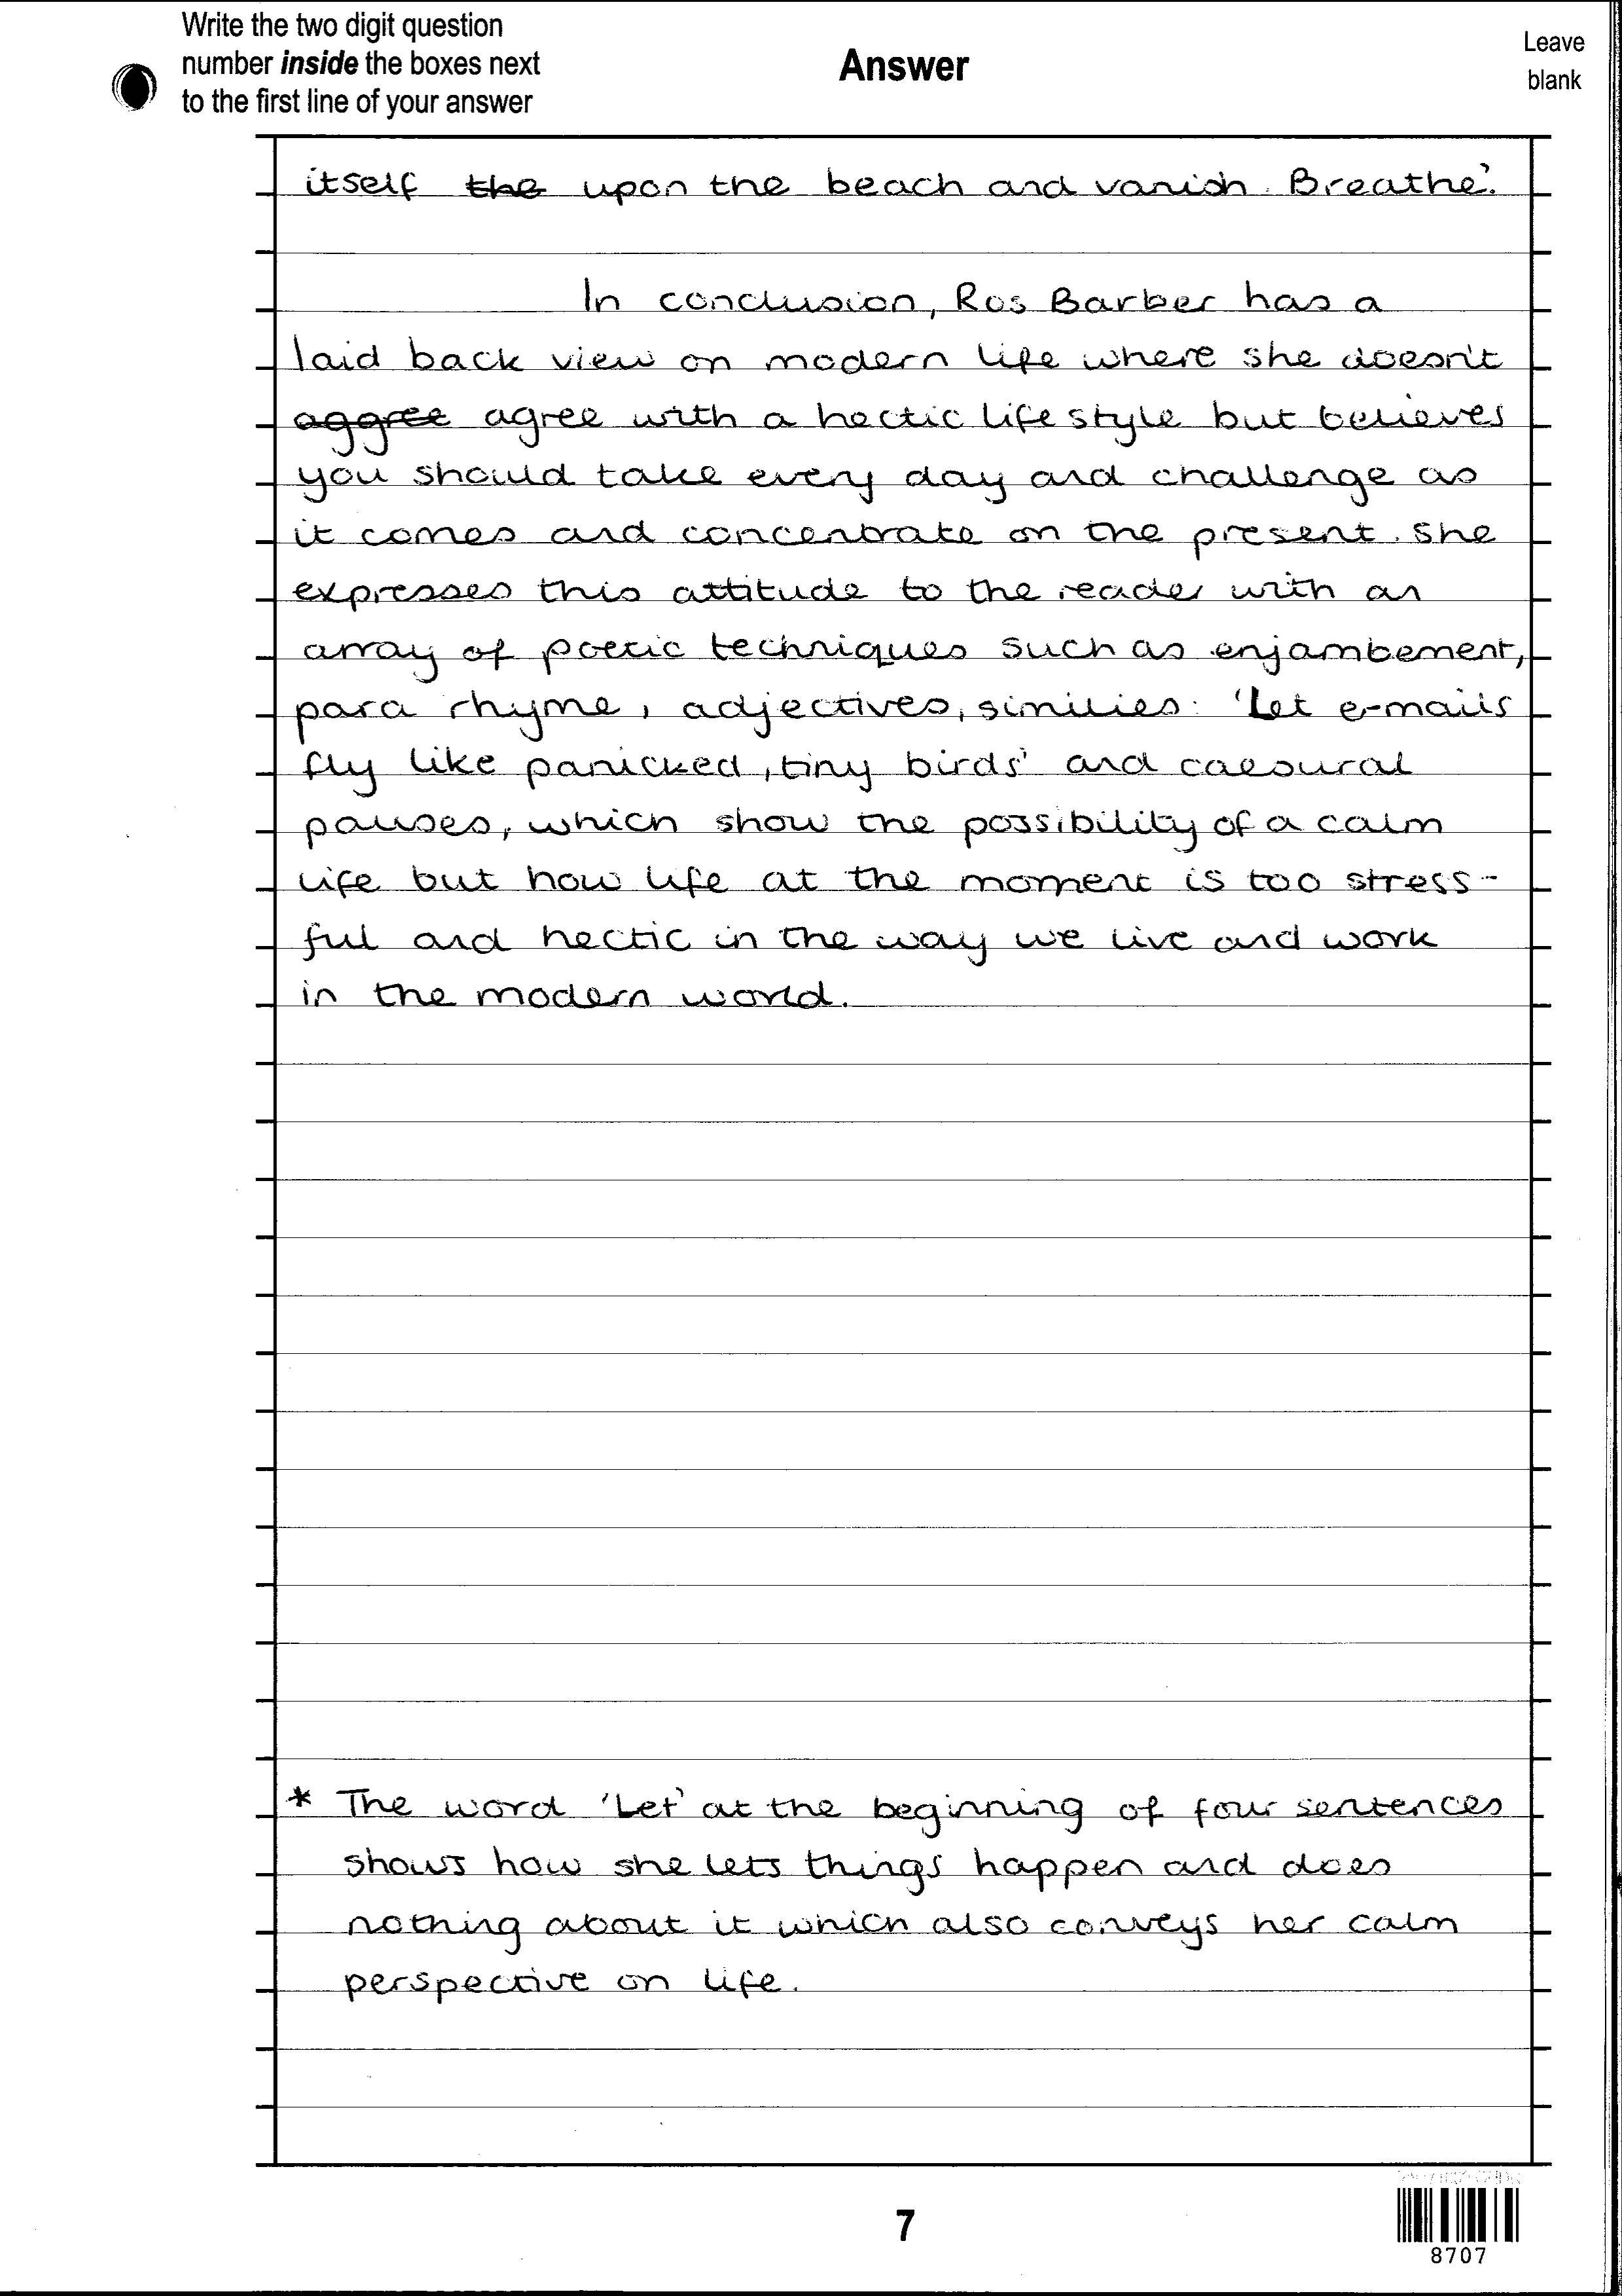 Write the two digit question
number inside the boxes next
to the first line of your answer
Answer
Leave
blank
itself the upon the beach and vanish. Breathe'.
In conclusion, Ros Barber has a
laid back view on modern life where she doesn't
aggree agree with a hectic lifestyle but believes
you should take every day and challenge as
it comes and concentrate on the present. She
expresses this attitude to the reader with an
array of poetic techniques such as enjambement,
para rhyme, adjectives, similies: 'Let e-mails
fly like panicked, tiny birds' and caesural
pauses, which show the possibility of a calm
life but how life at the moment is too stress-
ful and hectic in the way we live and work
in the modern world.
* The word 'Let' at the beginning of four sentences
shows how she lets things happen and does
nothing about it which also conveys her calm
perspective on life.
7
8707